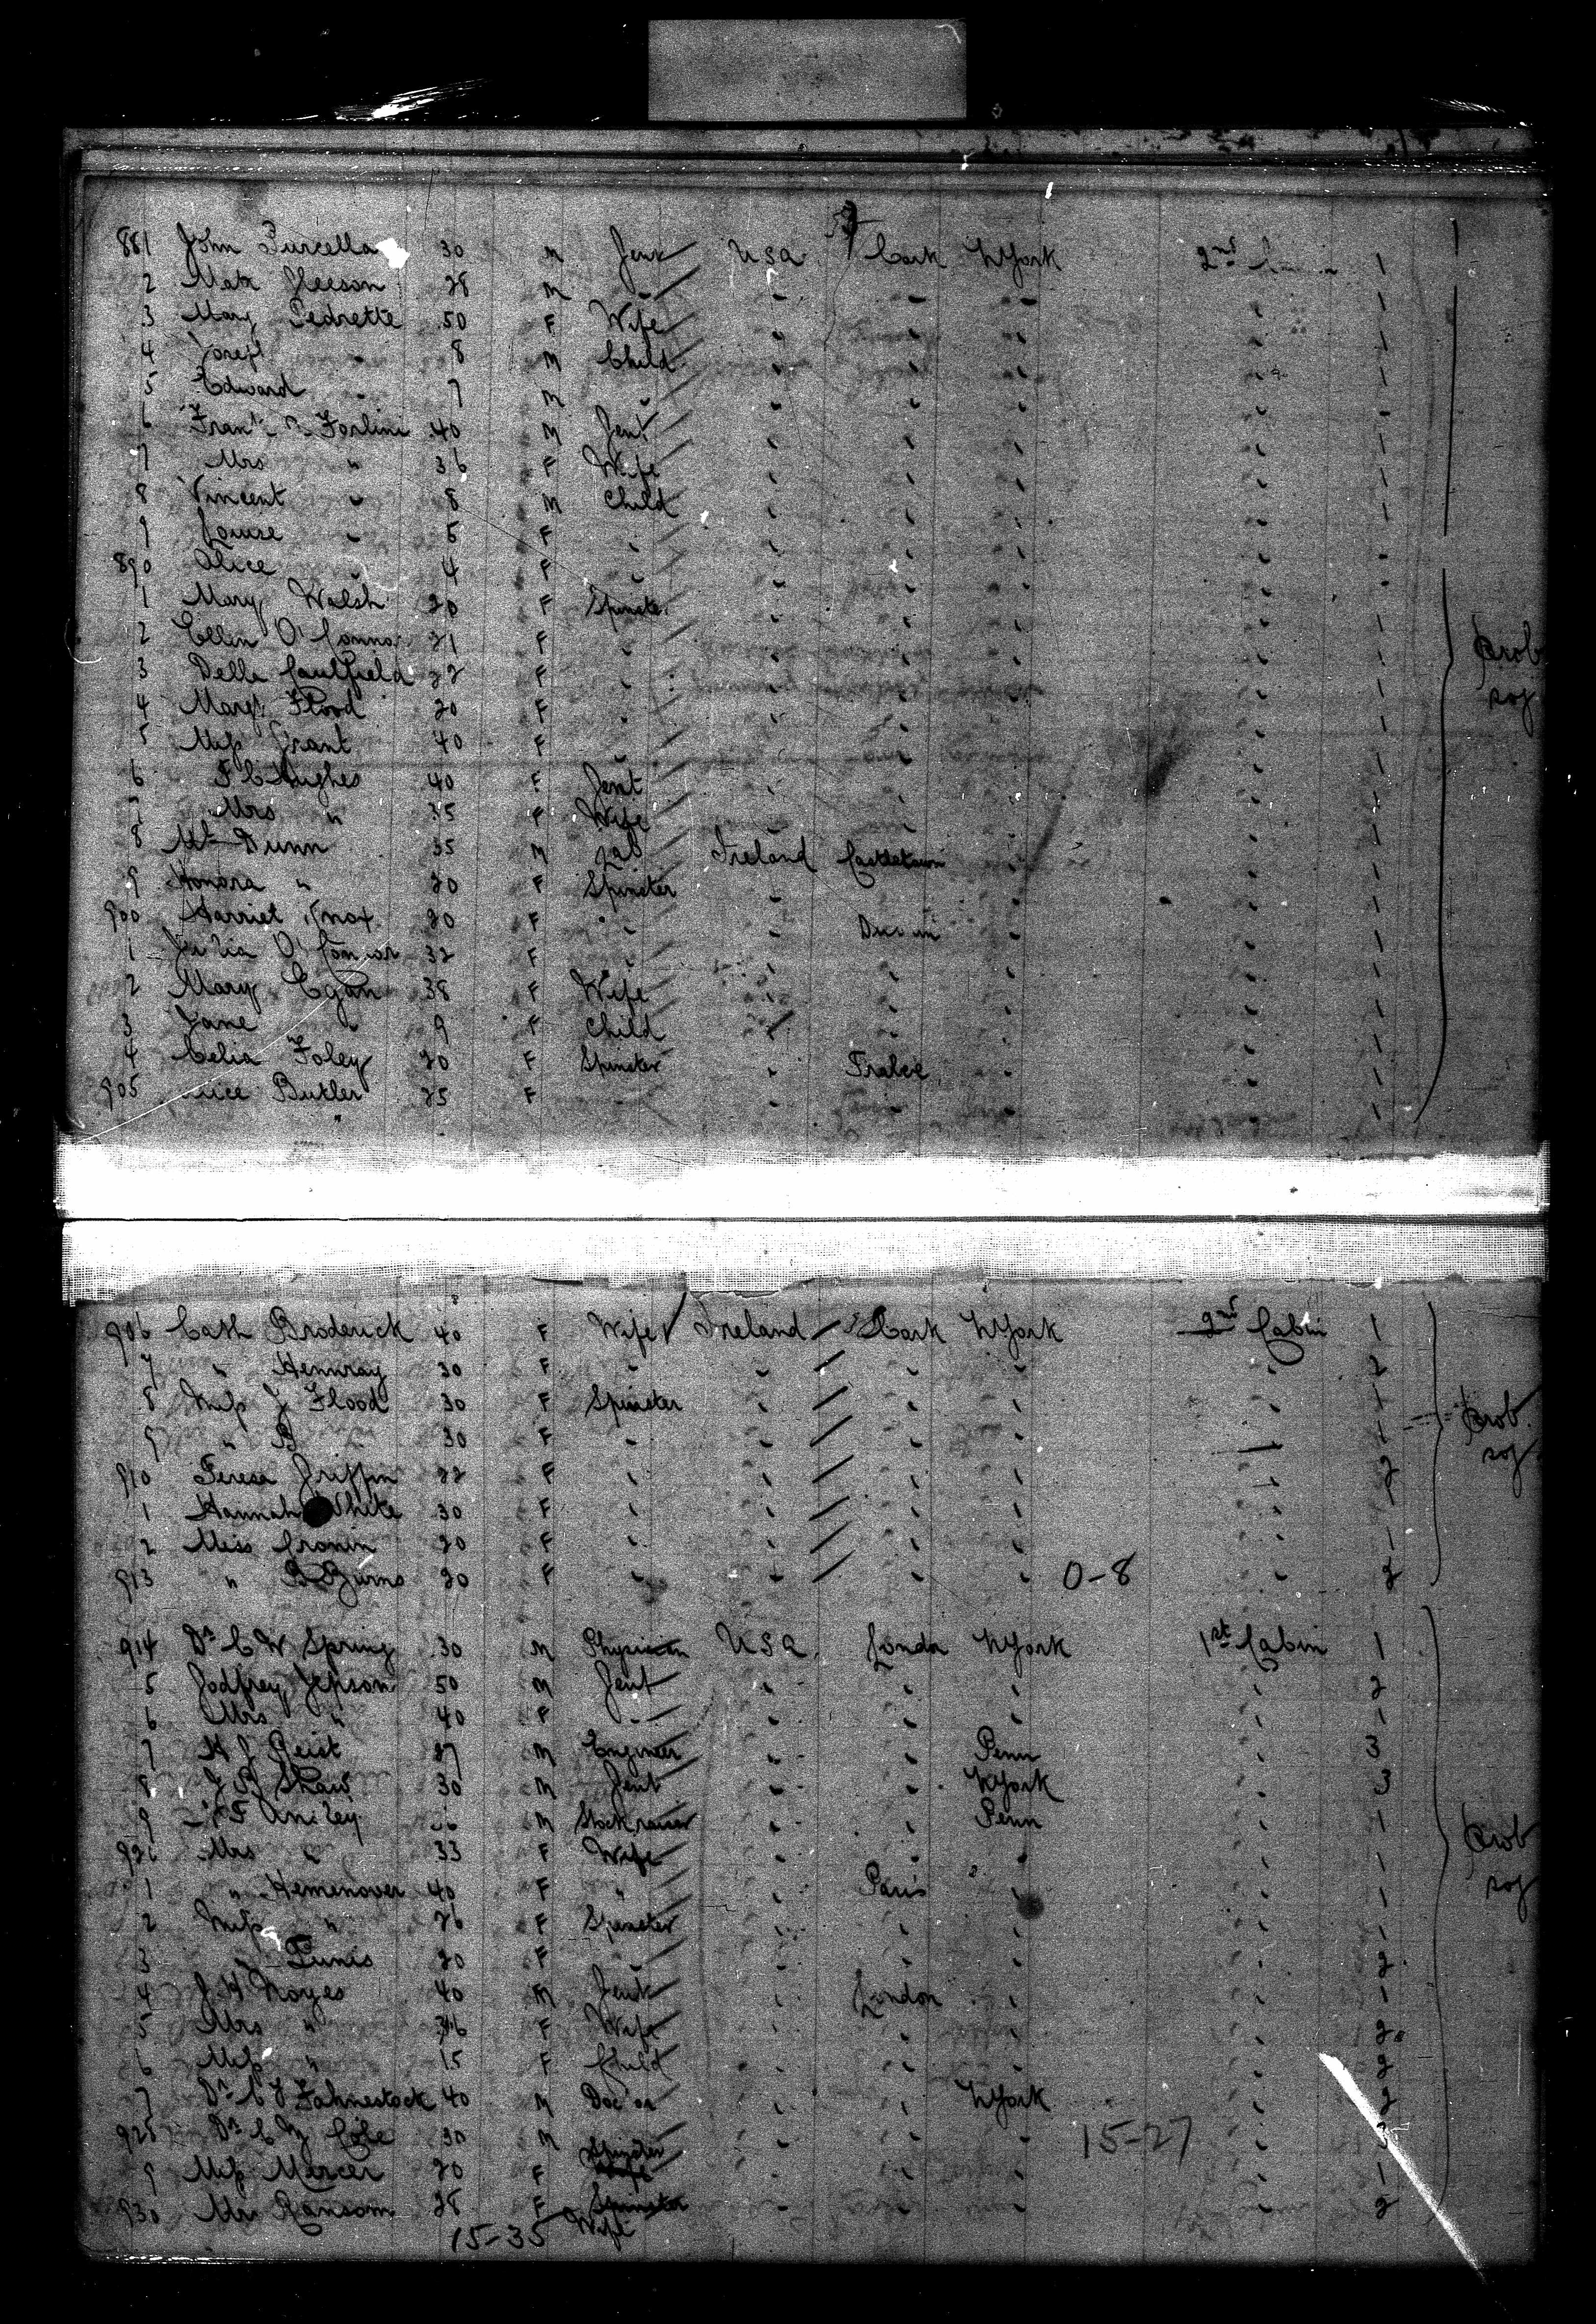 881 John Purcella 30 M Gent USA Cork NYork 2nd 1
2 Gleeson 28 M " " " " 1
3 Mary Pedrette 50 F Wife " " " " 1
4 Joseph " 8 M Child " " " " 1
5 Edward " 7 M " " " " "
6 Frank Forlini 40 M Gent " " " " 1
7 Mrs " 36 F Wife " " " " 1
8 Vincent " 8 M Child " " " " 1
9 Louise " 5 F " " " " "
890 Alice " 4 F " " " " "
1 Mary Walsh 20 F Spinster " " " " 1
2 Ellen O'Connor 21 F " " " " " 1
3 Delle Caulfield 22 F " " " " " 1
4 Margt Flood 20 F " " " " " 1
5 Miss Grant 40 F " " " " " 1
6 F C Hughes 40 F Gent " " " "
7 Mrs " 35 F Wife " " " " 1
8 Mt Dunn 35 M Lab Ireland Castletown " " 1
9 Honora " 20 F Spinster " " " " 1
900 Harriet Knox 20 F " " Dublin " " 1
1 Julia O'Connor 32 F " " " " " 1
2 Mary Egan 38 F Wife " " " " 1
3 Jane " 9 F Child " " " " 1
4 Celia Foley 20 F Spinster " Tralee " " 1
905 Alice Butler 25 F " " " " " 1
prob
soj
906 Cath Broderick 40 F Wife Ireland Cork NYork 2nd Cabin 1
7 " Hennray 30 F " " " " " 2
8 Miss J Flood 30 F Spinster " " " " 1
9 " B " 30 F " " " " 1
910 Teresa Griffin 22 F " " " " " 2
1 Hannah White 30 F " " " " " 1
2 Miss Cronin 20 F " " " " " 1
913 " B Burns 20 F " " " " 0-8 " 2
prob.
soj
914 Dr C W Spring 30 M Physician USA London NYork 1st Cabin 1
5 Godfrey Jepson 50 M Gent " " " " 2
6 Mrs " 40 F " " " " " 1
7 H J Geist 27 M Engineer " " Penn " 3
8 J B Shaw 30 M Gent " " NYork " 3
9 F M Stock raiser " " Penn " 1
920 Mrs " 33 F Wife " " " " 1
1 " Hemenover 40 F " " Paris " " 1
2 Miss " 26 F Spinster " " " " 1
3 " Tunis 20 F " " " " " 2
4 J H Noyes 40 M Gent " London " " 1
5 Mrs " 36 F Wife " " " " 2
6 Miss " 15 F Child " " " " 2
7 Dr C J Fahnestock 40 M Doctor " " NYork " 2
928 Dr C M Cole 30 M " " " " 15-27 " 3
9 Miss Mercer 20 F Spinster " " " " 1
930 Mrs Ransom 28 F Spinster " " " " 2
15-35 Wife
prob
soj